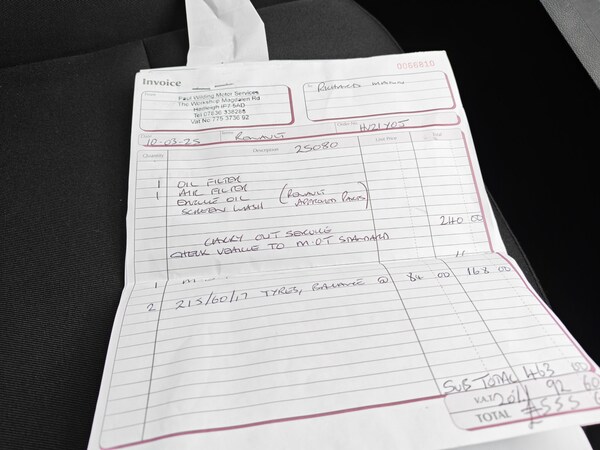 0000810
Invoice
Paul Wilding Motor Services
The Workshop Magdalen Rd
Hadleigh IP7 5AD
Tel 07836 336268
Vat No 775 3736 92
10-03-25 RENAULT HV21YOJ
Quantity Description 25080
1 OIL FILTER
1 AIR FILTER
ENGINE OIL (RENAULT
SCREEN WASH APPROVED PARTS)
240 00
CARRY OUT SERVICE
CHECK VEHICLE TO M.O.T STANDARD
1
2 215/60/17 TYRES, BALANCE @ 84 00 168 00
SUB TOTAL 463 00
VAT 20% 92 60
TOTAL £555